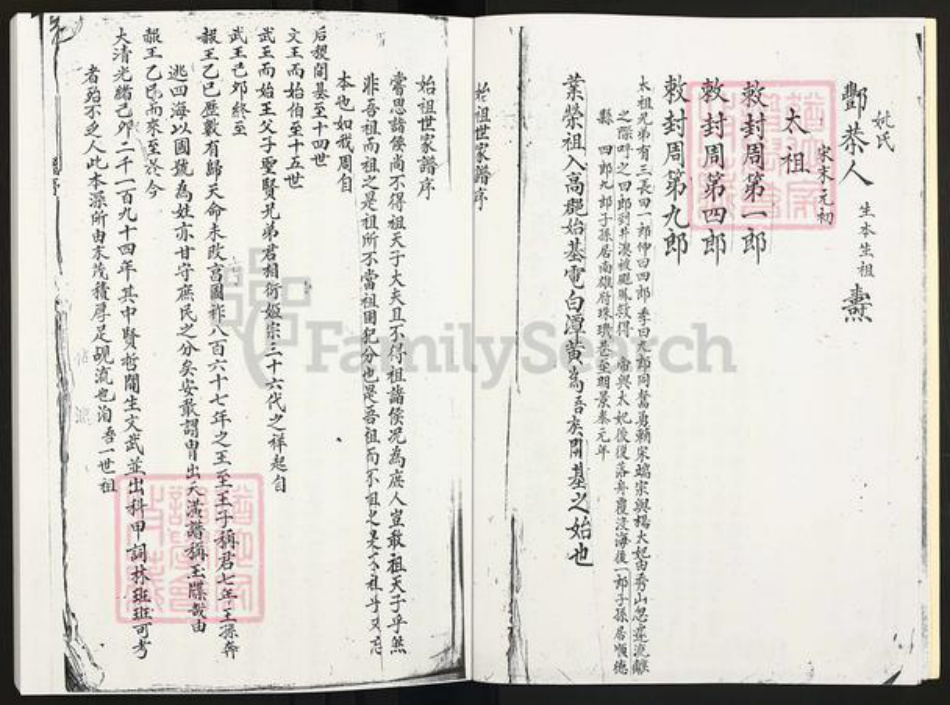 姚氏
酆恭人
生本生祖燾
宋末元初
太祖
敕封周第一郎
敕封周第四郎
敕封周第九郎
太祖兄弟有三長曰一郎仲曰四郎季曰九郎同奮勇賴宋端宗與楊太妃由秀山忽遭流離
之際呼之四郎到井澳被颶風救得 帝與太妃後復落舟覆沒海後一郎子孫居順德
縣 四郎九郎子孫居南雄府珠璣巷至明景泰元年
業榮祖入高 始基電白潭黃為吾族開基之始也
始祖世家譜序
始祖世家譜序
嘗思諸侯尚不得祖天子大夫且不得祖諸侯况為庶人豈敢祖天子乎然
非吾祖而祖之是祖所不當祖固犯分也是吾祖而不祖之是不祖 又忘
本也如我周自
后稷開基至十四世
文王而始伯至十五世
武王而始王父子聖賢兄弟君相衍姬宗三十六代之祥起自
武王己卯終至
赧王乙巳歷數有歸天命未改言國祚八百六十七年之王至王子稱君七年王孫奔
逃四海以國號為姓亦甘守庶民之分矣安敢謂胄出天潢譜稱玉牒哉由
赧王乙巳而來至於今
大清光緒己卯二千一百九十四年其中賢哲間生文武並出科甲詞林班班可考
者殆不乏人此本源所由末茂積厚足覘流也洎吾一世祖
FamilySearch